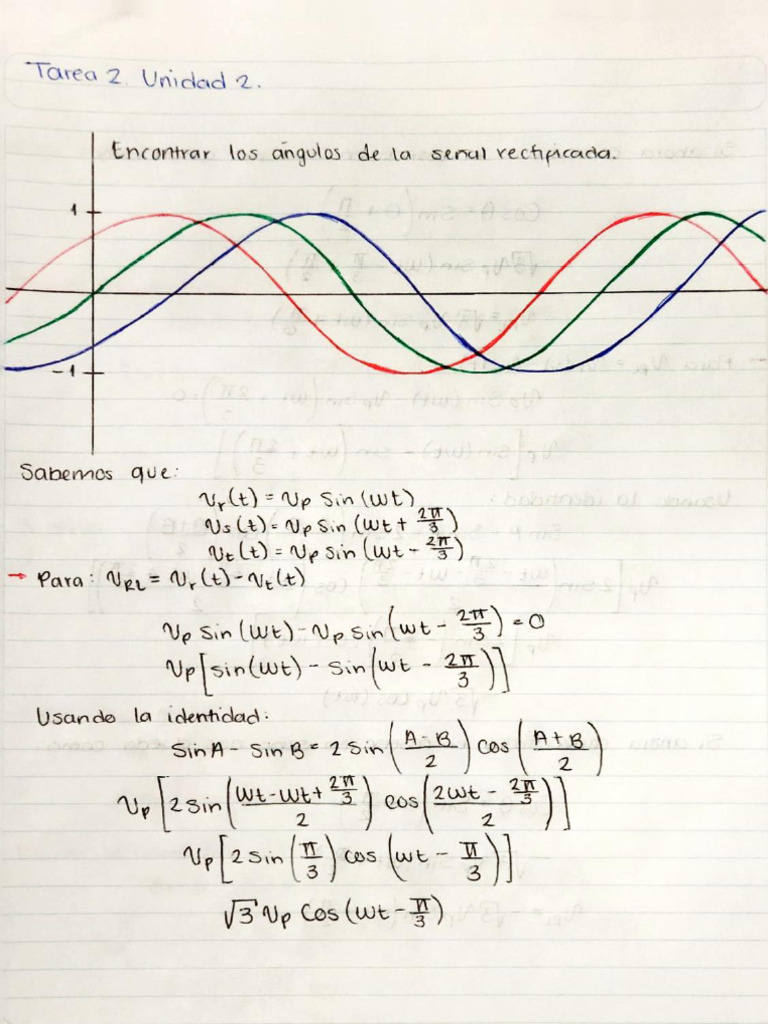 Tarea 2. Unidad 2.
Encontrar los ángulos de la señal rectificada.
1
-1
Sabemos que:
Vr(t) = Vp Sin (wt)
Vs(t) = Vp Sin (wt + 2π/3)
Vt(t) = Vp Sin (wt - 2π/3)
→ Para: VRL = Vr(t) - Vt(t)
Vp Sin (wt) - Vp Sin (wt - 2π/3) = 0
Vp [Sin(wt) - Sin (wt - 2π/3)]
Usando la identidad:
Sin A - Sin B = 2 Sin ((A-B)/2) cos ((A+B)/2)
Vp [2 Sin ((wt - wt + 2π/3)/2) cos ((2wt - 2π/3)/2)]
Vp [2 Sin (π/3) cos (wt - π/3)]
√3 Vp Cos (wt - π/3)